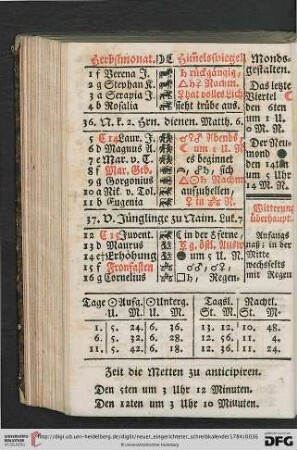 Herbstmonat. DC Himelsspiegel Monds-
1 f Verena J. ♄ rückgängig, gestalten.
2 g Stephan K. △♄♀ Nachm. Das letzte
3 a Serapia J. ♀ hat volles Lich Viertel ☾
4 b Rosalia sieht trübe aus. den 6ten
36. N. k. 2. Hrn. dienen. Matth. 6. um 1 U.
C 14 Laur. J. ☌♂♀ Abends 0 M. N.
6 d Magnus A. ☾ um 1 U. N. Der Neu-
7 e Mar. v. T. es beginnet mond
8 f Mar. Geb. sich den 14ten
9 g Gorgonius Nachm um 5 Uhr
10 a Nik. v. Tol. aufzuhellen, 14 M. N.
11 b Eugenia ♀ in N.
37. V. Jünglinge zu Naim. Luk. 7 Witterung
überhaupt.
12 C 15 Juvent. ☾ in der Ferne, Anfangs
13 d Maurus ♀ g. östl. Ausw naß; in der
14 e Erhöhung um 5 U. N. Mitte
15 f Fronfasten wechselts
16 g Cornelius Regen. mit Regen
Tage ☉Aufg. ☉Unterg. Tagsl. Nachtl.
U. M. U. M. St. M. St. M.
1. 5. 24. 6. 36. 13. 12. 10. 48.
6. 5. 32. 6. 28. 12. 56. 11. 4.
11. 5. 42. 6. 18. 12. 36. 11. 24.
Zeit die Metten zu anticipiren.
Den 5ten um 3 Uhr 12 Minuten.
Den 12ten um 3 Uhr 10 Minuten.
UNIVERSITÄTS-BIBLIOTHEK HEIDELBERG
http://digi.ub.uni-heidelberg.de/diglit/neuer_eingerichteter_schreibkalender1784/0036
© Universitätsbibliothek Heidelberg
gefördert durch die
DFG